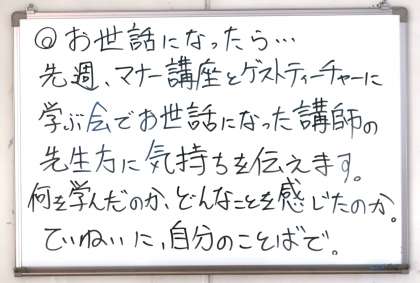 ◎お世話になったら…
先週、マナー講座とゲストティーチャーに
学ぶ会でお世話になった講師の
先生方に気持ちを伝えます。
何を学んだのか、どんなことを感じたのか。
ていねいに、自分のことばで。